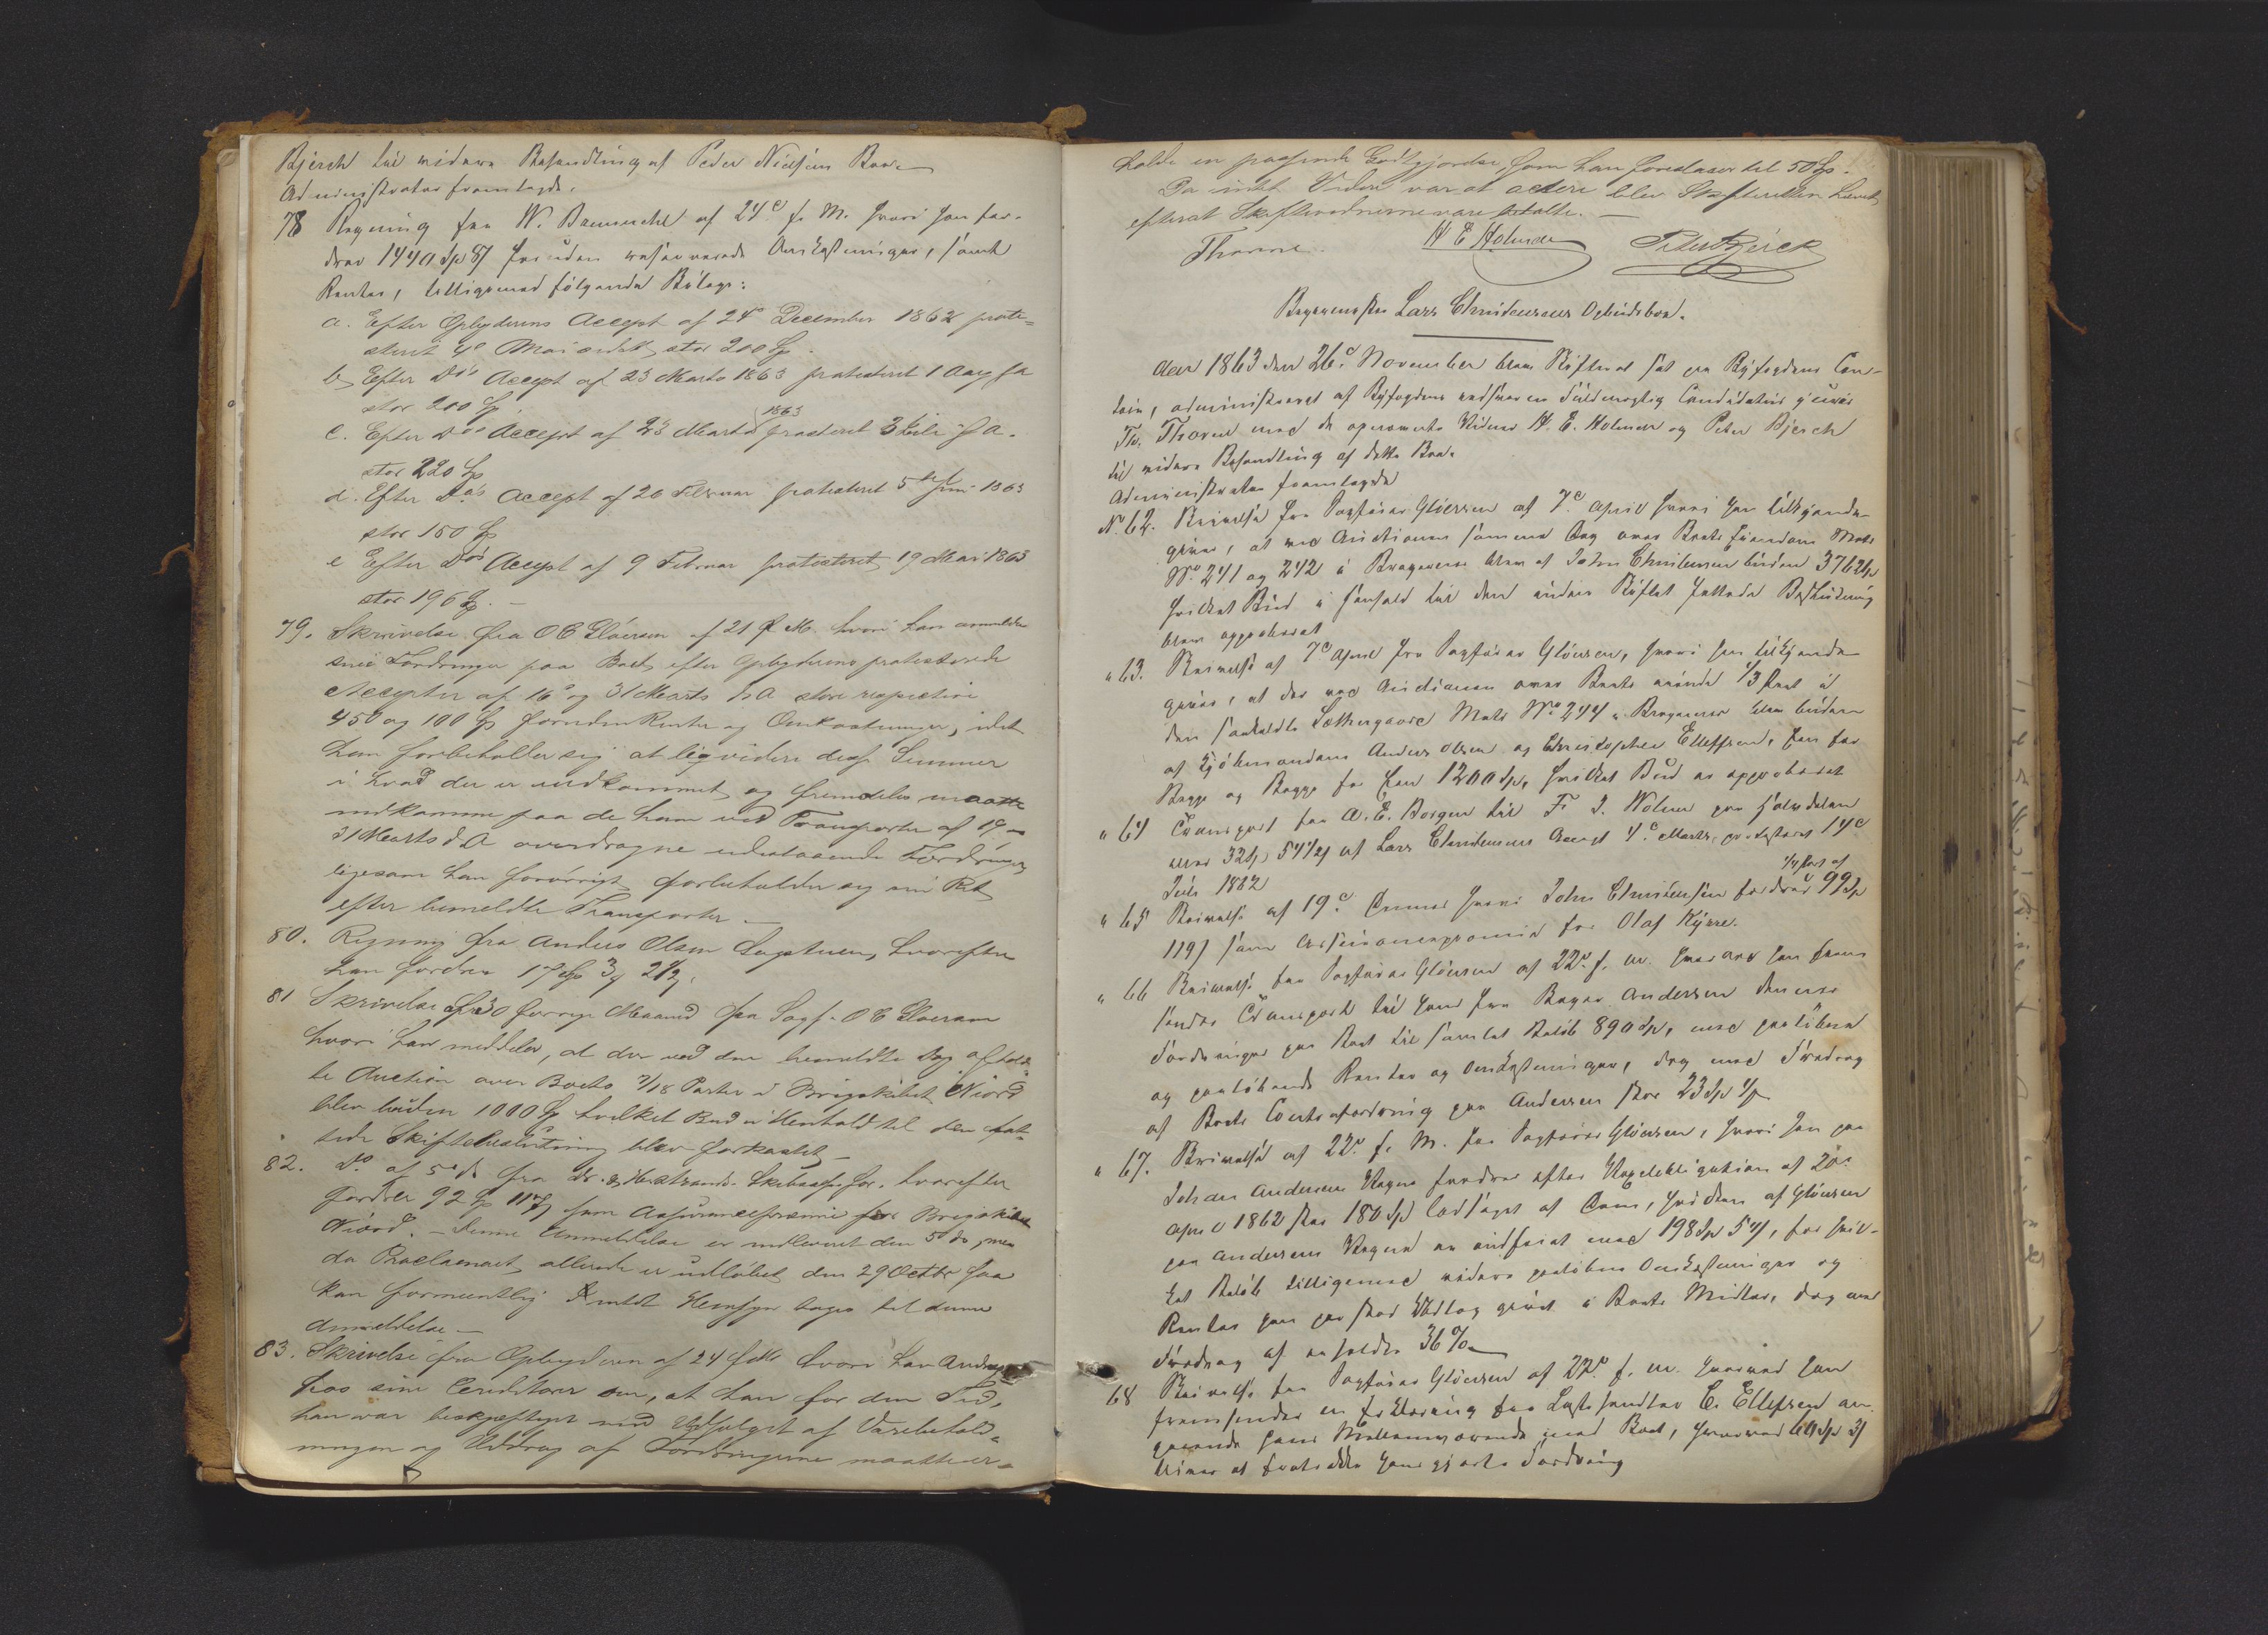 Bjerch til videre Behandling af Peder Nielsens Bo.
Administrator fremlagde.
78 Regning fra W. Bamencke af 24d f. M. hvori han for-
drer 1440 Sp 8 ß foruden reserverede Omkostninger, samt
Renter, tilligemed følgende Bilage:
a. Efter Opbyderens Accept af 24de December 1862 prote-
steret 4de Mai sidstl. stor 200 Sp.
b. Efter Dos Accept af 23 Marts 1863 protesteret 1 Aug f A
stor 200 Sp.
c. Efter Dos Accept af 23 Marts 1863 protesteret 3 Juli f A.
stor 220 Sp
d. Efter Dos Accept af 20 Februar protesteret 5te Juni 1863
stor 150 Sp
e Efter Dos Accept af 9 Februar protesteret 19 Mai 1863
stor 196 Sp. —
79. Skrivelse fra O C Gløersen af 21 f M. hvori han anmelder
sine Fordringer paa Boet efter Opbyderens protesterede
Accepter af 16de og 31 Marts f A store respective
450 og 100 Sp foruden Renter og Omkostninger, idet
han forbeholder sig at liqvidere disse Summer
i hvad der er indkommet og fremdeles maatte
indkomme paa de ham ved Transporter af 19 og
31 Marts d. A overdragne udestaaende Fordringer
ligesom han forøvrigt forbeholder sig sin Ret
efter bemeldte Transporter. —
80. Regning fra Anders Olsen hvorefter
han fordrer 17 Sp 3 ß 21 ß.
81 Skrivelse fra 30 forrige Maaned fra Sagf. O C Gløersen
hvori han meddeler, at der ved den bemeldte Dag afhold-
te Auction over Boets 7/18 Parter i Brigskibet Niord
blev buden 1000 Sp hvilket Bud i Henhold til den fat-
tede Skiftebeslutning blev forkastet —
82. Do af 5te ds fra Dr. Skibsassf. for. hvorefter
fordrer 92 Sp 117 ß som Assurancepræmie for Brigskibet
Niord. — Denne Anmeldelse er indleveret den 5te ds, men
da Proclamaet allerede er udløbet den 29 Octbr saa
kan formentlig Intet Hensyn tages til denne
Anmeldelse —
83. Skrivelse fra Opbyderen af 24 f M hvori han Andrager
hos sine Creditorer om, at han for den Tid,
han var beskjæftiget med Udsalget af Varebehold-
ningen og Uddrag af Fordringerne maatte er-
holde en passende Godtgjørelse, som han foreslaaer til 50 Sp.
Da intet Videre var at actere blev Skifteretten hævet
efterat Skiftevidnerne vare betalte. —
Thorne H E Holmsen Peter Bjerck
Bragernes Lars Christensens Opbudsbo.
Aar 1863 den 26d November blev Skifteret sat paa Byfogdens Con-
toir, administreret af Byfogdens edsvorne Fuldmægtig Candidatus juris
Fr. Thorne med de opnævnte Vidner H. E. Holmsen og Peter Bjerch
til videre Behandling af dette Bo.
Administrator fremlagde
No 62. Skrivelse fra Sagfører Gløersen af 7d April hvori han tilkjende-
giver, at ved Auctionen samme Dag over Boets Eiendom Matr
No 241 og 242 i Bragernes blev af John Christensen buden 376 Sp
hvilket Bud i Henhold til den under Skiftet fattede Beslutning
blev approberet
" 63. Skrivelse af 7d April fra Sagfører Gløersen, hvori han tilkjende-
giver, at der ved Auctionen over Boets eiende 1/3 Part i
den saakaldte Lathergaard Matr No 244 i Bragernes blev buden
af Kjøbmændene Anders Olsen og Christopher Elleffsen, Een for
Begge og Begge for Een 1200 Sp, hvilket Bud er approberet
" 64 Transport fra A. E. Borgen til Fr. J. Wolner paa Halvdelen
eller 32 Sp 54 1/2 ß af Lars Christensens Accept 4d Marts, protesteret 14d
Juli 1862
" 65 Skrivelse af 19d Ds hvori John Christensen fordrer 1/4 Part af 99 Sp
119 ß som Assurancepræmie for Olaf Kyrre.
" 66 Skrivelse fra Sagfører Gløersen af 22d f. M. hvorved han frem-
sender Transport til ham fra Bager Andersen dennes
Fordringer paa Boet til samlet Beløb 890 Sp, med paaløbne
og paaløbende Renter og Omkostninger, dog med Fradrag
af Boets Contrafordring paa Andersen stor 23 Sp 4 ß
" 67. Skrivelse af 22d f. M. fra Sagfører Gløersen, hvori han paa
Johan Andersens Vegne fordrer efter Vexelobligation af 20d
April 1862 stor 180 Sp Cridaren, hvilken af Gløersen
paa Andersens Vegne er indfriet med 198 Sp 5 ß, for hvil-
ket Beløb tilligemed videre paaløbne Omkostninger og
Renter han paastaar Udlæg givet i Boets Midler, dog med
Fradrag af erholdte 36 %
68 Skrivelse fra Sagfører Gløersen af 22d f. M. hvorved han
fremsender en Erklæring fra Lasthandler C. Ellefsen an-
gaaende hans Mellemværende med Boet, hvorved 60 Sp 3 ß
bliver at fratrække hans gjorte Fordring